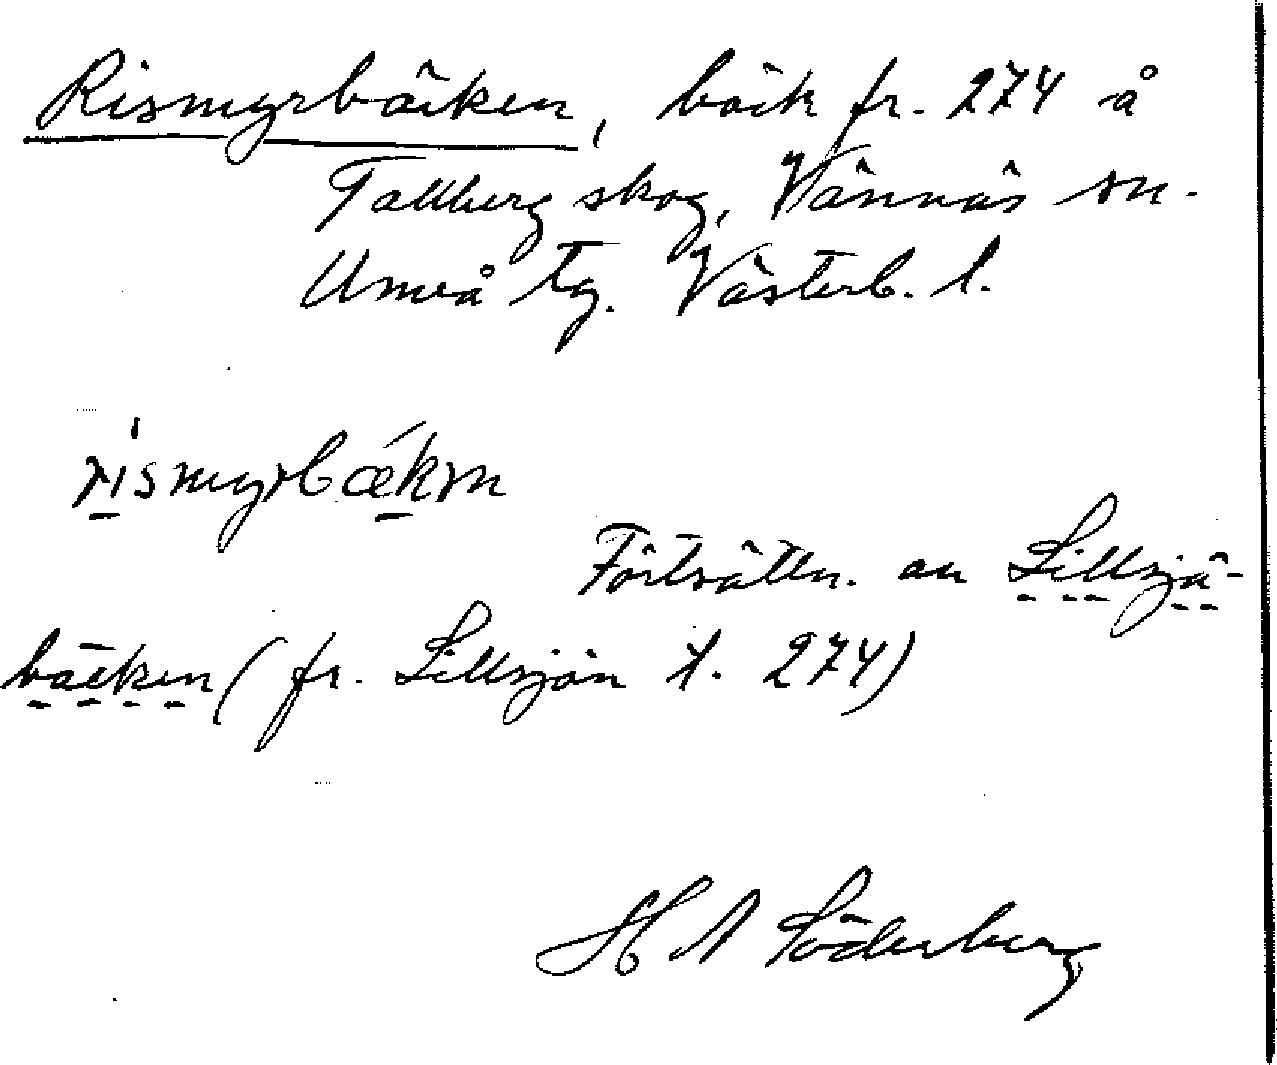 Rismyrbäcken, bäck fr. 274 å
Tallberg skog, Vännäs sn.
Umeå tg. Västerb. l.
rismyrbækɳ
Fortsättn. av Lillsjö-
bäcken (fr. Lillsjön t. 274)
H A Söderberg